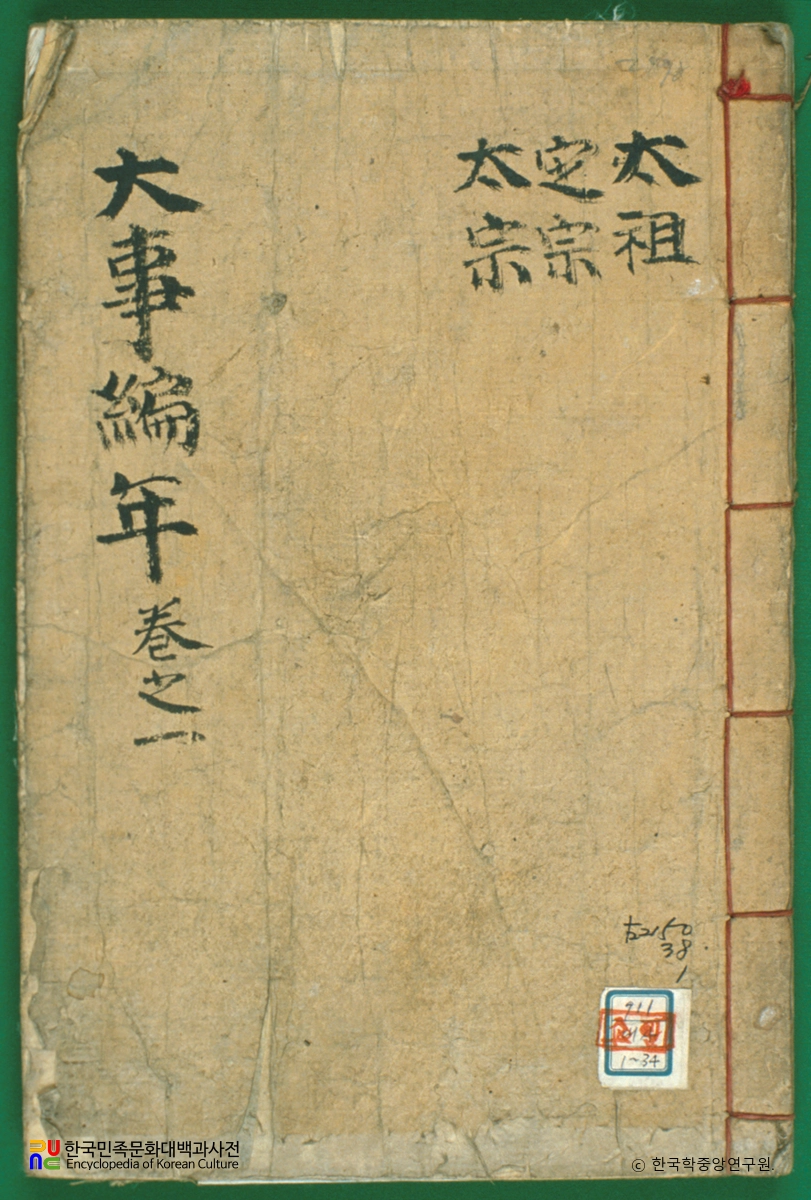 太祖
定宗
太宗
大事編年 卷之一
古2150
38
1
911
1~34
한국민족문화대백과사전
Encyclopedia of Korean Culture
© 한국학중앙연구원.